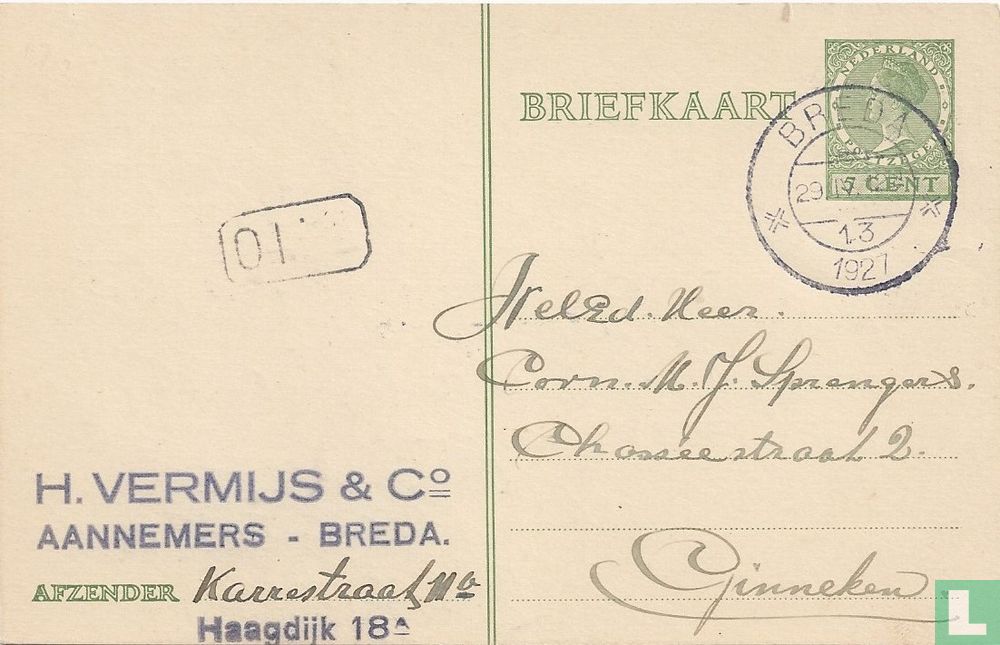 BRIEFKAART
NEDERLAND
POSTZEGEL
5 CENT
BREDA
29.IV
13
1927
WelEd. Heer.
Corn. M. J. Sprengers.
Chasséestraat 2.
Ginneken.
H. VERMIJS & Cº
AANNEMERS - BREDA.
AFZENDER Karrestraat
Haagdijk 18ᴬ
L